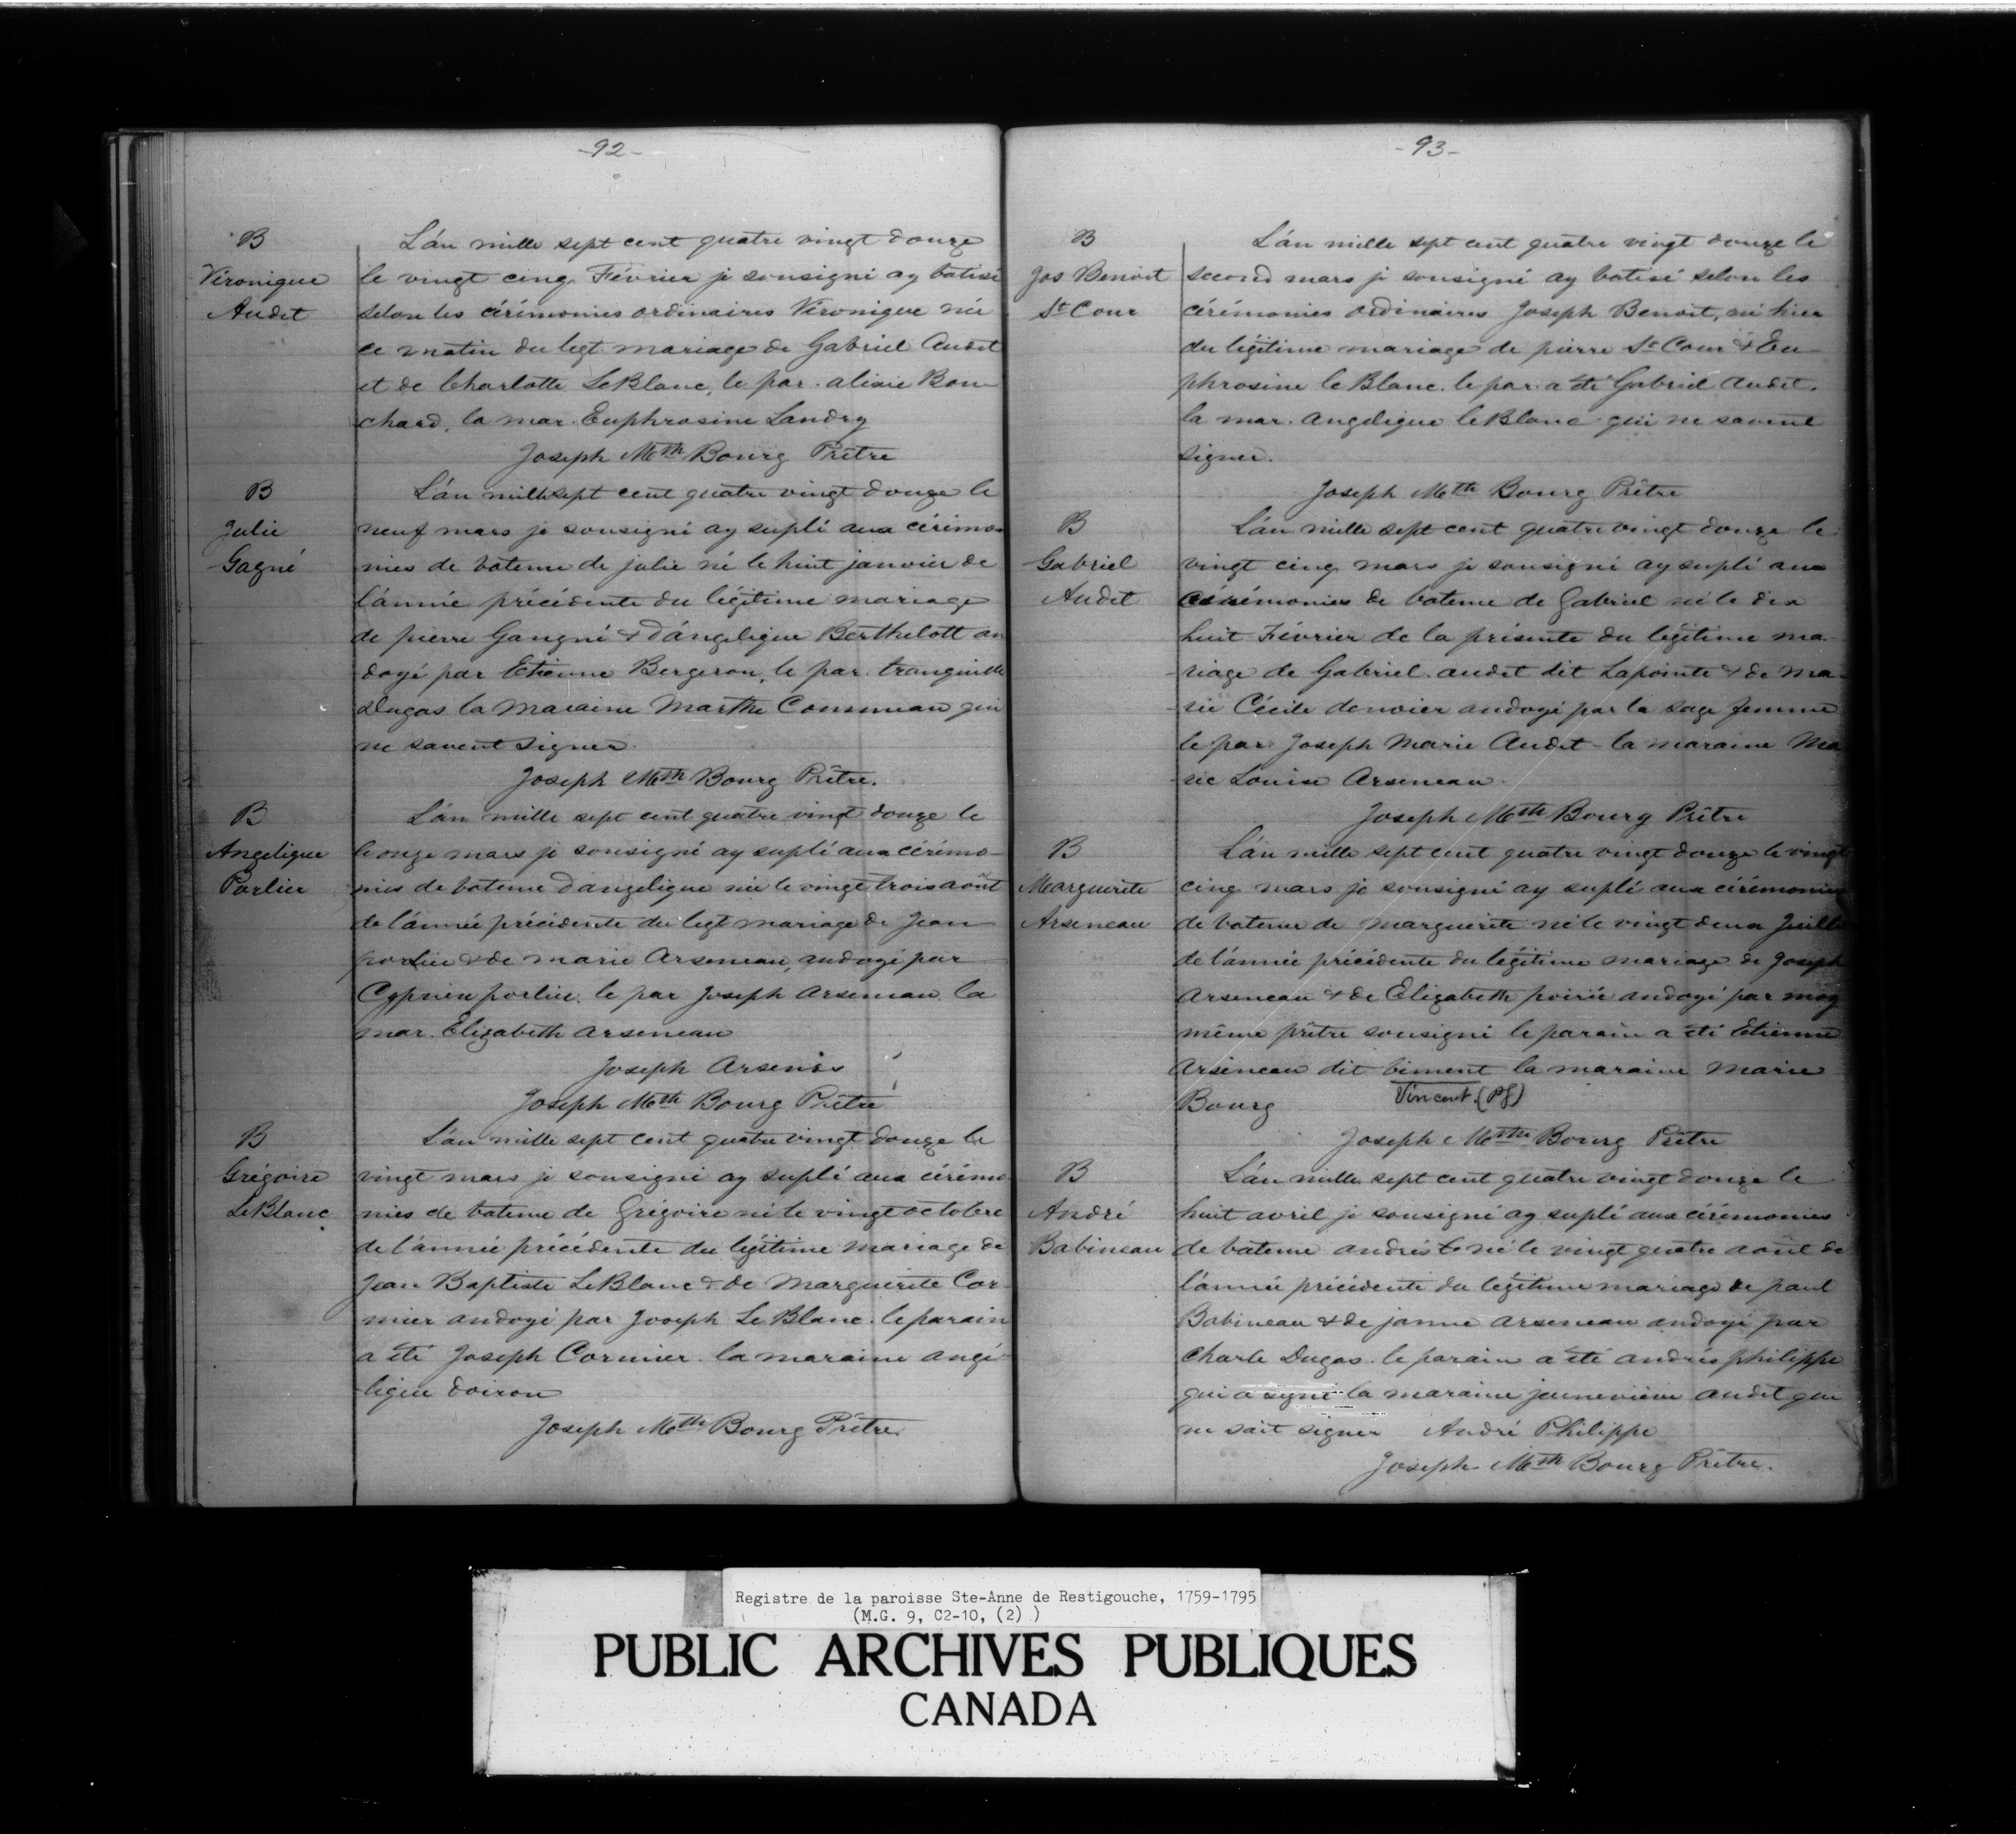 -92-
B
Véronique
Audet
L'án mille sept cent quatre vingt douze
le vingt cinq Février je sousigné ay batisé
selon les cérémonies ordinaires Véronique née
ce matin du legt mariage de Gabriel Audet
et de Charlotte LeBlanc, le par. alixie Bou
chard, la mar. Euphrosine Landry
Joseph Mth Bourg Prêtre
B
Julie
Gagné
L'án mille sept cent quatre vingt douze le
neuf mars je sousigné ay suplé aux cérémo-
nies de bateme de julie né le huit janvier de
l'année précédente du légitime mariage
de pierre Gangné & d'ángelique Berthelott on
doyé par Etienne Bergeron, le par. tranquille
Dugas la maraine Marthe Commeau qui
ne savent signer.
Joseph Mth Bourg Prêtre.
B
Angelique
Porlier
L'án mille sept cent quatre vingt douze le
le onze mars je sousigné ay suplé aux cérémo-
nies de bateme d'angelique née le vingt trois août
de l'année précédente du legt mariage de Jean
porlier & de marie Arseneau, andoyé par
Cyprien porlier. le par Joseph Arseneau. la
mar. Elizabeth arseneau
Joseph Arsenos
Joseph Mth Bourg Prêtre
B
Grégoire
LeBlanc
L'án mille sept cent quatre vingt douze le
vingt mars je sousigné ay suplé aux cérémo
nies de bateme de Grégoire né le vingt octobre
de l'année précédente du légitime mariage de
Jean Baptiste LeBlanc & de Marguerite Cor-
mier andoyé par Joseph Le Blanc. le parain
a été Joseph Cormier. la maraine angé-
lique doiron
Joseph Mth Bourg Prêtre
-93-
B
Jos Benoit
St Cour
L'án mille sept cent quatre vingt douze le
second mars je sousigné ay batisé selon les
cérémonies ordinaires Joseph Benoit, né hier
du légitime mariage de pierre St Cour & Eu
phrosine le Blanc. le par. a été Gabriel Audet.
la mar. angelique leBlanc qui ne savent
signer.
Joseph Mth Bourg Prêtre
B
Gabriel
Audet
L'án mille sept cent quatre vingt douze le
vingt cinq mars je sousigné ay suplé aux
cérémonies de bateme de Gabriel né le dix
huit Février de la présente du légitime ma-
riage de Gabriel audet dit Lapointe & de Ma-
rie Cécile denoier andoyé par la sage femme
le par. Joseph Marie Audet la maraine Ma
rie Louise Arseneau.
Joseph Mth Bourg Prêtre
B
Marguerite
Arseneau
L'án mille sept cent quatre vingt douze le vingt
cinq mars je sousigné ay suplé aux cérémonies
de bateme de marguerite né le vingt deux Juillet
de l'année précédente du légitime mariage de Joseph
Arseneau & de Elizabeth poirié andoyé par moy
même prêtre sousigné le parain a été Etienne
Arseneau dit biment la maraine Marie
Vincent. (Pf)
Bourg
Joseph Mth Bourg Prêtre
B
André
Babineau
L'án mille sept cent quatre vingt douze le
huit avril je sousigné ay suplé aux cérémonies
de bateme andrés né le vingt quatre août de
l'année précédente du légitime mariage de paul
Babineau & de janne arseneau andoyé par
Charle Dugas. le parain a été andrés philippe
qui a signé la maraine jeunevieve audet qui
ne sait signer André Philippe
Joseph Mth Bourg Prêtre.
Registre de la paroisse Ste-Anne de Restigouche, 1759-1795
(M.G. 9, C2-10, (2) )
PUBLIC ARCHIVES PUBLIQUES
CANADA